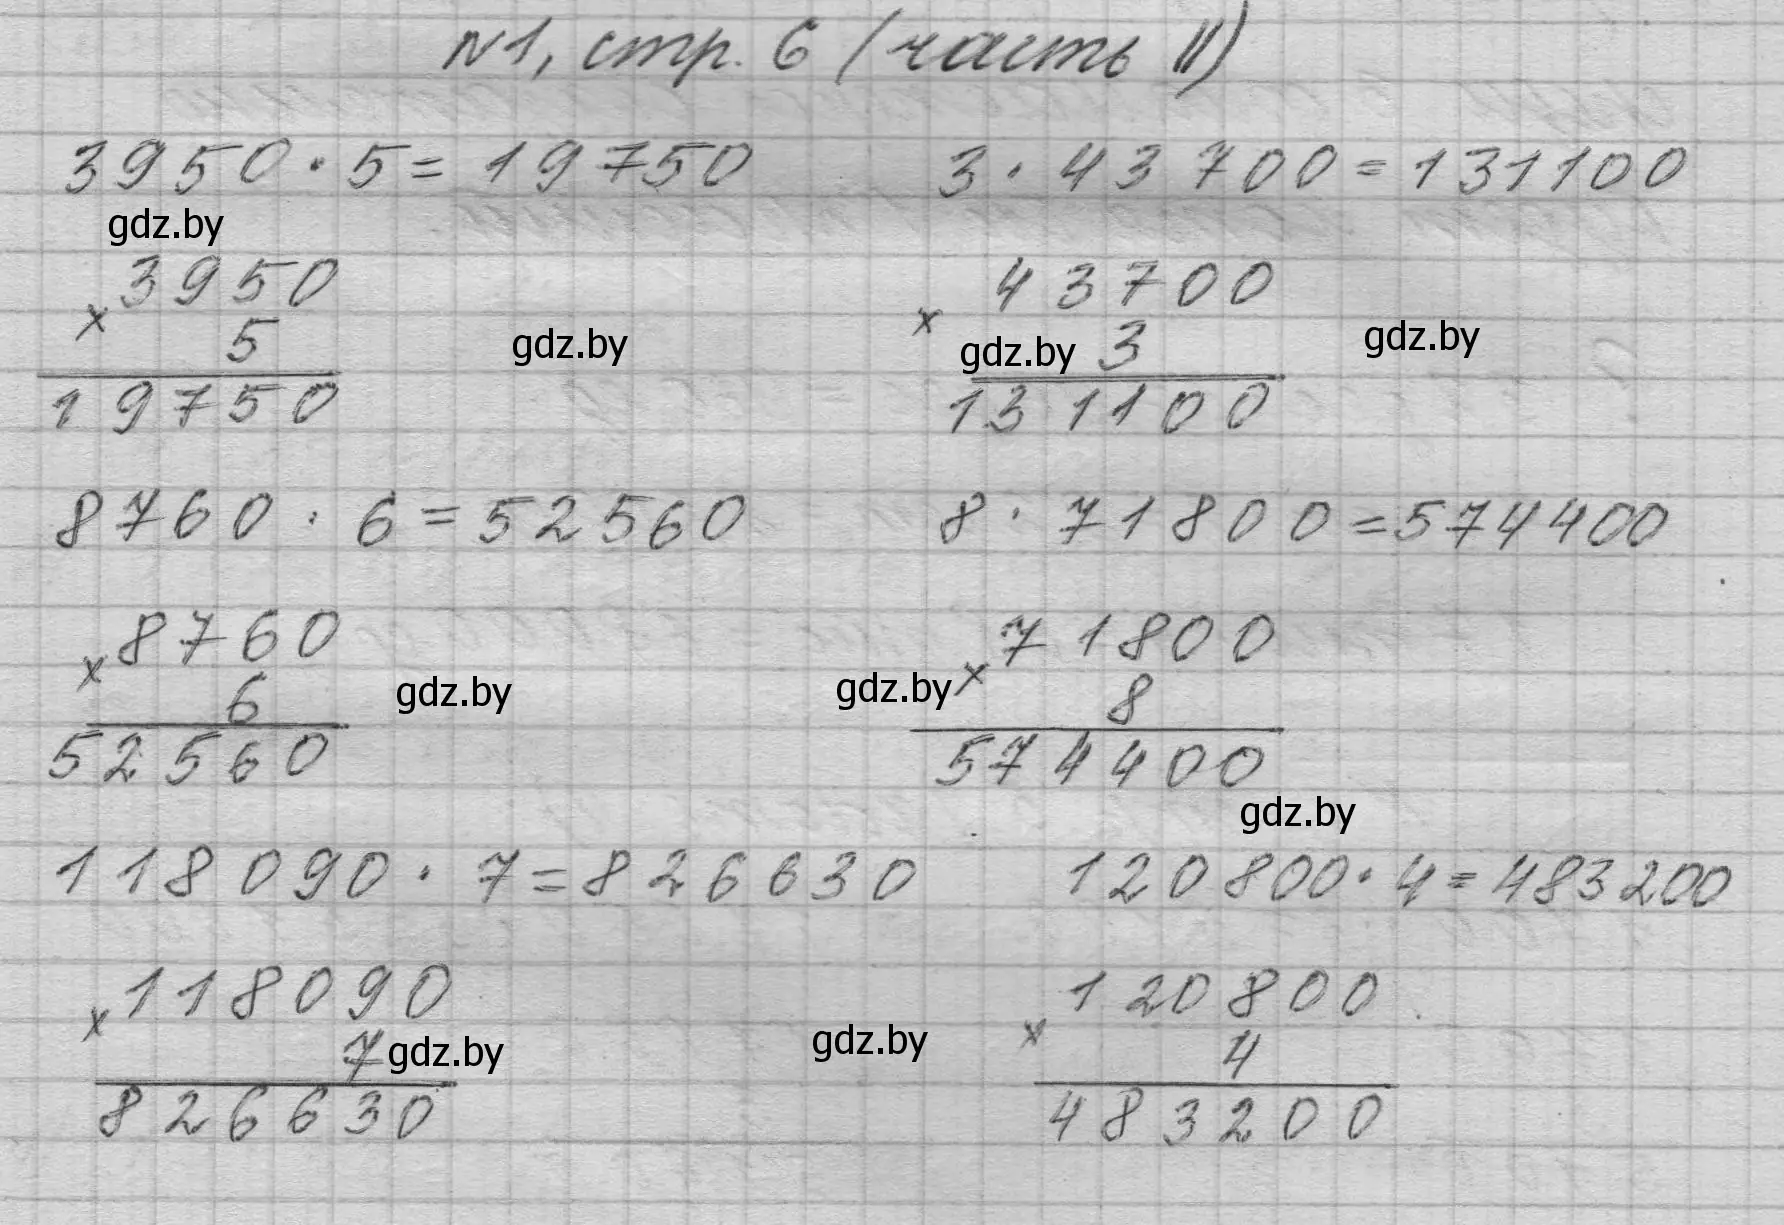 №1, стр. 6 (часть II)
3950 · 5 = 19750
3 · 43700 = 131100
gdz.by
3950
× 5
19750
gdz.by
43700
× 3
gdz.by
gdz.by
131100
8760 · 6 = 52560
8 · 71800 = 574400
8760
× 6
52560
gdz.by
71800
× 8
574400
gdz.by
gdz.by
118090 · 7 = 826630
120800 · 4 = 483200
118090
× 7
826630
gdz.by
gdz.by
120800
× 4
483200